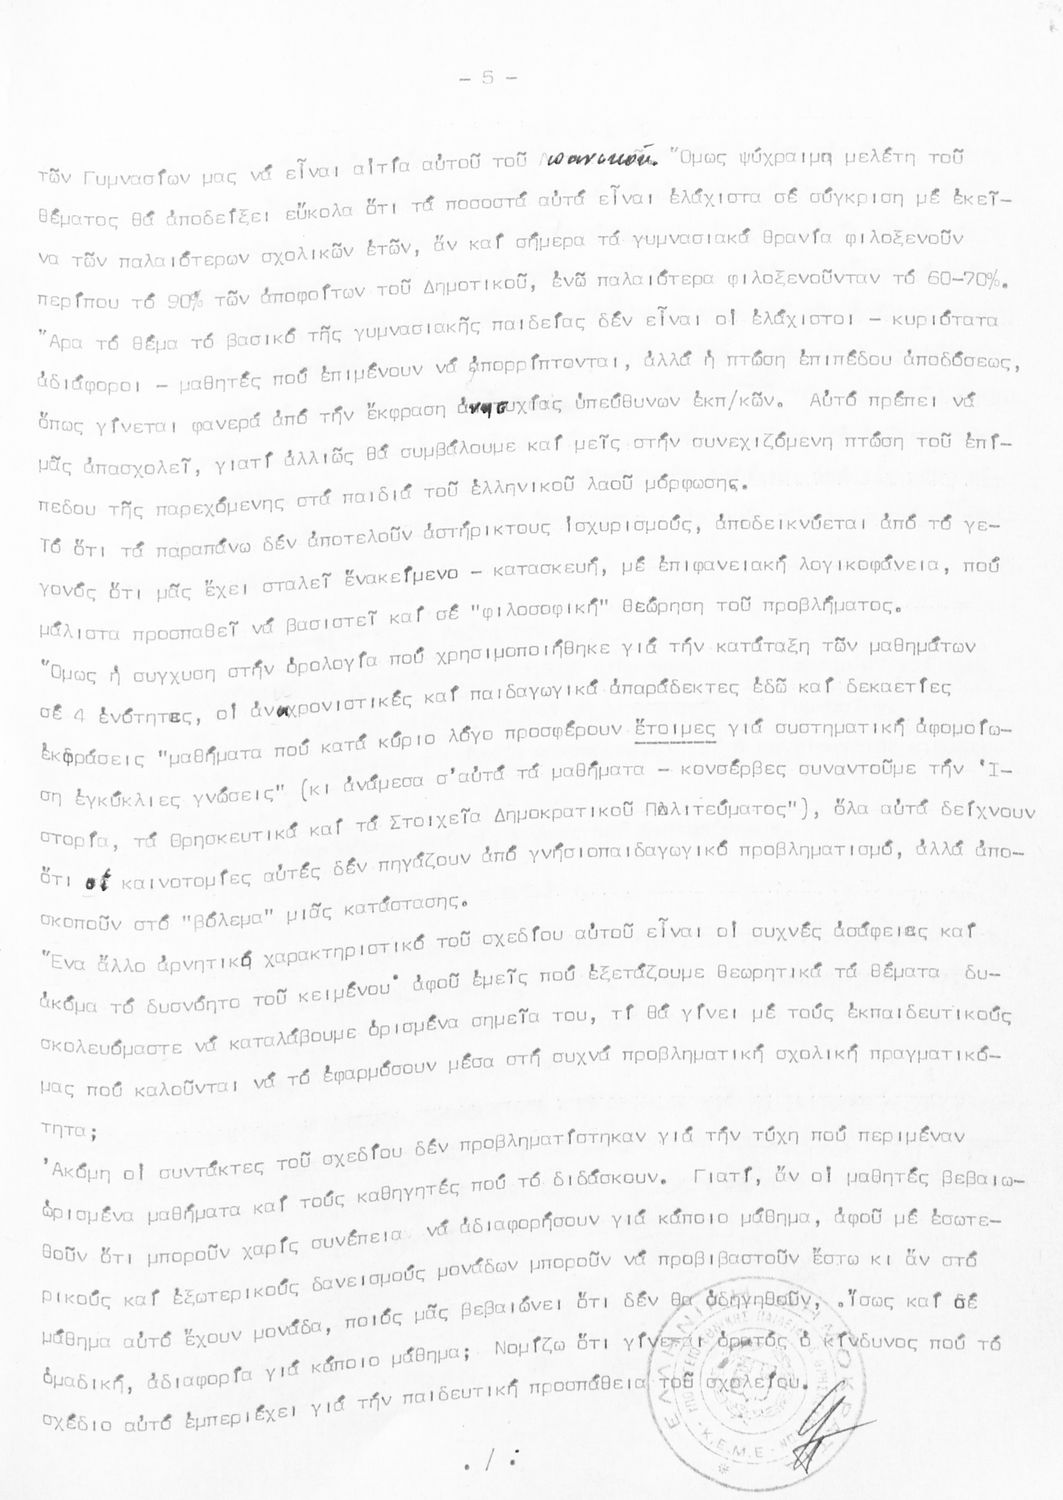 - 5 -
τῶν Γυμνασίων μας νά εἶναι αἰτία αὐτοῦ τοῦ πανικοῦ. Ὅμως ψύχραιμη μελέτη τοῦ
θέματος θά ἀποδείξει εὔκολα ὅτι τά ποσοστά αὐτά εἶναι ἐλάχιστα σέ σύγκριση μέ ἐκεῖ-
να τῶν παλαιότερων σχολικῶν ἐτῶν, ἄν καί σήμερα τά γυμνασιακά θρανία φιλοξενοῦν
περίπου τό 90% τῶν ἀποφοίτων τοῦ Δημοτικοῦ, ἐνῶ παλαιότερα φιλοξενοῦνταν τό 60-70%.
Ἄρα τό θέμα τό βασικό τῆς γυμνασιακῆς παιδείας δέν εἶναι οἱ ἐλάχιστοι - κυριότατα
ἀδιάφοροι - μαθητές πού ἐπιμένουν νά ἀπορρίπτονται, ἀλλά ἡ πτώση ἐπιπέδου ἀποδόσεως,
ὅπως γίνεται φανερά ἀπό τήν ἔκφραση ἀνησυχίας ὑπεύθυνων ἐκπ/κῶν. Αὐτό πρέπει νά
μᾶς ἀπασχολεῖ, γιατί ἀλλιῶς θά συμβάλουμε καί μεῖς στήν συνεχιζόμενη πτώση τοῦ ἐπι-
πέδου τῆς παρεχόμενης στά παιδιά τοῦ ἑλληνικοῦ λαοῦ μόρφωσης.
Τό ὅτι τά παραπάνω δέν ἀποτελοῦν ἀστήρικτους ἰσχυρισμούς, ἀποδεικνύεται ἀπό τό γε-
γονός ὅτι μᾶς ἔχει σταλεῖ ἕνακείμενο - κατασκευή, μέ ἐπιφανειακή λογικοφάνεια, πού
μάλιστα προσπαθεῖ νά βασιστεῖ καί σέ "φιλοσοφική" θεώρηση τοῦ προβλήματος.
Ὅμως ἡ συγχυση στήν ὁρολογία πού χρησιμοποιήθηκε γιά τήν κατάταξη τῶν μαθημάτων
σέ 4 ἑνότητες, οἱ ἀναχρονιστικές καί παιδαγωγικά ἀπαράδεκτες ἐδῶ καί δεκαετίες
ἐκφράσεις "μαθήματα πού κατά κύριο λόγο προσφέρουν ἕτοιμες γιά συστηματική ἀφομοίω-
ση ἐγκύκλιες γνώσεις" (κι ἀνάμεσα σ'αὐτά τά μαθήματα - κονσέρβες συναντοῦμε τήν Ἱ-
στορία, τά Θρησκευτικά καί τά Στοιχεῖα Δημοκρατικοῦ Πολιτεύματος"), ὅλα αὐτά δείχνουν
ὅτι οἱ καινοτομίες αὐτές δέν πηγάζουν ἀπό γνήσιοπαιδαγωγικό προβληματισμό, ἀλλά ἀπο-
σκοποῦν στό "βόλεμα" μιᾶς κατάστασης.
Ἕνα ἄλλο ἀρνητικό χαρακτηριστικό τοῦ σχεδίου αὐτοῦ εἶναι οἱ συχνές ἀσάφειες καί
ἀκόμα τό δυσνόητο τοῦ κειμένου· ἀφοῦ ἐμεῖς πού ἐξετάζουμε θεωρητικά τά θέματα δυ-
σκολευόμαστε νά καταλάβουμε ὁρισμένα σημεῖα του, τί θά γίνει μέ τούς ἐκπαιδευτικούς
μας πού καλοῦνται νά τό ἐφαρμόσουν μέσα στή συχνά προβληματική σχολική πραγματικό-
τητα;
Ἀκόμη οἱ συντάκτες τοῦ σχεδίου δέν προβληματίστηκαν γιά τήν τύχη πού περιμέναν
ὡρισμένα μαθήματα καί τούς καθηγητές πού τό διδάσκουν. Γιατί, ἄν οἱ μαθητές βεβαιω-
θοῦν ὅτι μποροῦν χαρίς συνέπεια νά ἀδιαφορήσουν γιά κάποιο μάθημα, ἀφοῦ μέ ἐσωτε-
ρικούς καί ἐξωτερικούς δανεισμούς μονάδων μποροῦν νά προβιβαστοῦν ἔστω κι ἄν στό
μάθημα αὐτό ἔχουν μονάδα, ποιός μᾶς βεβαιώνει ὅτι δέν θα ὁδηγηθοῦν, .ἴσως καί σέ
ὁμαδική, ἀδιαφορία γιά κάποιο μάθημα; Νομίζω ὅτι γίνεται ὁρατός ὁ κίνδυνος πού τό
σχέδιο αὐτό ἐμπεριέχει γιά τήν παιδευτική προσπάθεια τοῦ σχολείου.
./:
Κ.Ε.Μ.Ε.